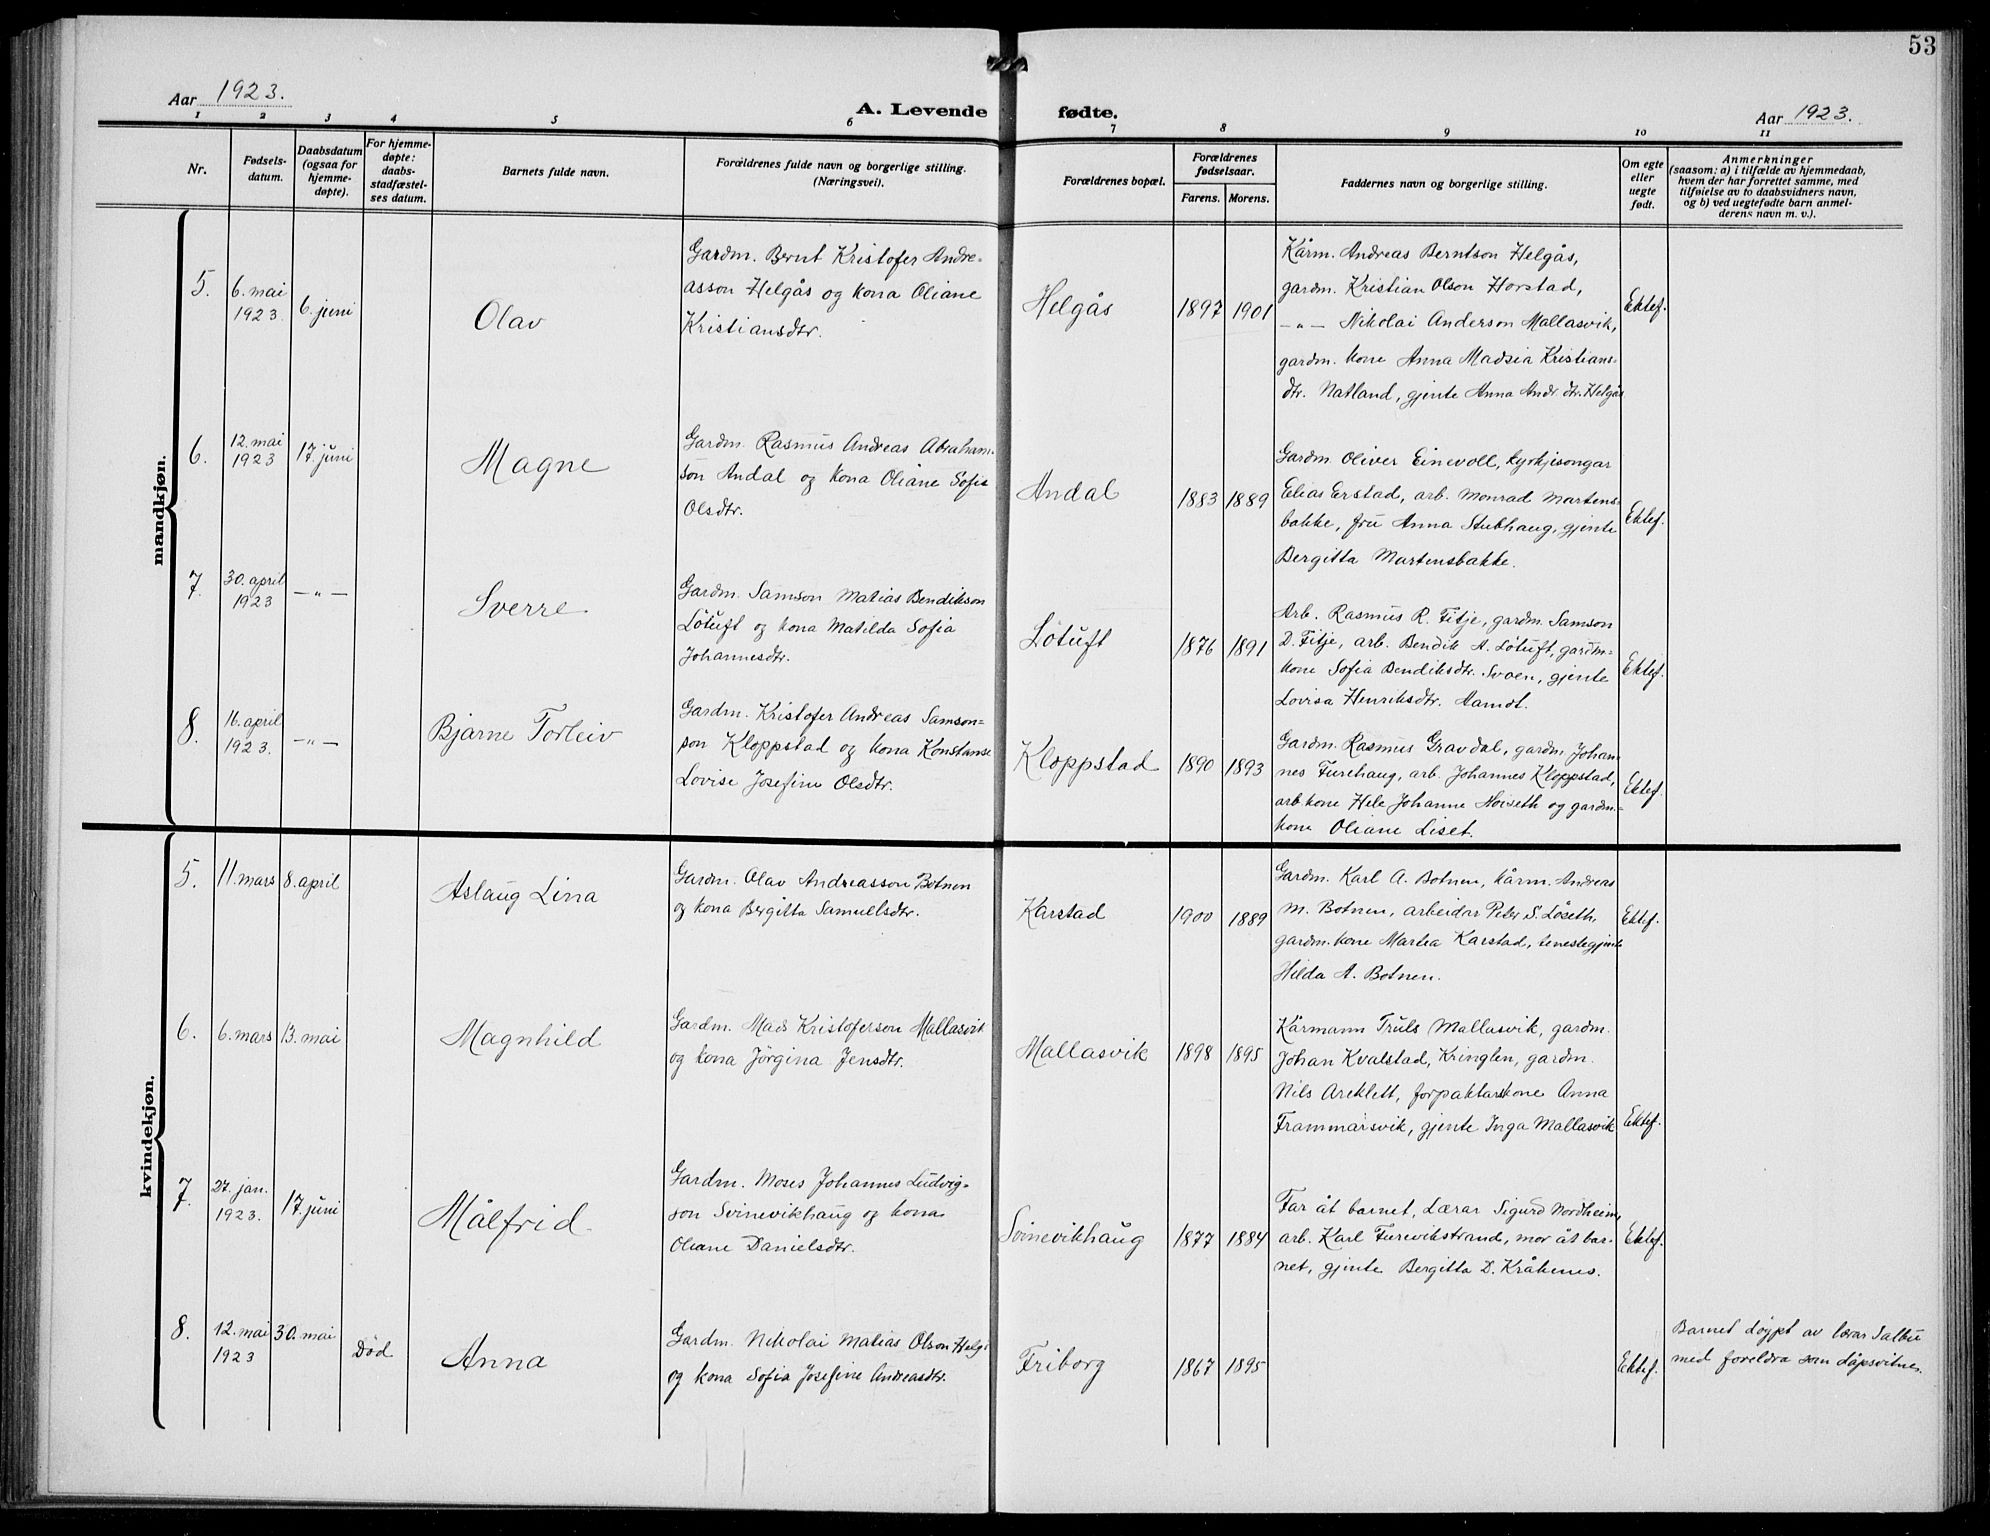 53
Aar 1923.
A. Levende fødte.
Aar 1923.
1 2 3 4 5 6 7 8 9 10 11
Nr.
Fødsels-
datum.
Daabsdatum
(ogsaa for
hjemme-
døpte).
For hjemme-
døpte:
daabs-
stadfæstel-
ses datum.
Barnets fulde navn.
Forældrenes fulde navn og borgerlige stilling.
(Næringsvei).
Forældrenes bopæl.
Forældrenes
fødselsaar.
Farens. Morens.
Faddernes navn og borgerlige stilling.
Om egte
eller
uegte
født.
Anmerkninger
(saasom: a) i tilfælde av hjemmedaab,
hvem der har forrettet samme, med
tilføielse av to daabsvidners navn,
og b) ved uegtefødte barn anmel-
derens navn m. v.).
mandkjøn.
5.
6. mai
1923.
6. juni
Olav
Gardm. Bernt Kristofer Andre-
asson Helgås og kona Oliane
Kristiansdtr.
Helgås
1897 1901
Kårm. Andreas Berntson Helgås,
gardm. Kristian Olson Horstad,
— „ — Nikolai Anderson Mallasvik,
gardm. kone Anna Madsia Kristians-
dtr. Natland, gjente Anna Andr dtr. Helgås
Ektef.
6.
12. mai
1923
17. juni
Magne
Gardm. Rasmus Andreas Abraham-
son Andal og kona Oliane Sofie
Olsdtr.
Andal
1883 1889
Gardm. Oliver Einevoll, kyrkjesongar
Elias Erstad, arb. Monrad Martens-
bakke, fru Anna Stubhaug, gjente
Bergitta Martensbakke.
Ektef.
7.
30. april
1923
— „ —
Sverre
Gardm. Samson Matias Bendikson
Løtuft og kona Matilda Sofia
Johannesdtr.
Løtuft
1876 1891
Arb. Rasmus R. Fitje, gardm. Samson
D. Fitje, arb. Bendik A. Løtuft, gardm-
kone Sofia Bendiksdtr. Svoen, gjente
Lovisa Henriksdtr. Aamot.
Ektef.
8.
16. april
1923.
— „ —
Bjarne Torleiv
Gardm. Kristofer Andreas Samson-
son Kloppstad og kona Konstanse
Lovise Josefine Olsdtr.
Kloppstad
1890 1893
Gardm. Rasmus Gravdal, gardm. Johan-
nes Furehaug, arb. Johannes Kloppstad,
arb. kone Hele Johanne Høiseth og gardm-
kone Oliane Liset.
Ektef.
kvindekjøn.
5.
11. mars
8. april
Aslaug Lina
Gardm. Olav Andreasson Botnen
og kona Bergitta Samuelsdtr.
Karstad
1900 1889
Gardm. Karl A. Botnen, kårm. Andreas
M. Botnen, arbeidar Peter S. Løseth,
gardm. kone Martea Karstad, tenestegjente
Hilda A. Botnen.
Ektef.
6.
6. mars
13. mai
Magnhild
Gardm. Mads Kristoferson Mallasvik
og kona Jörgina Jensdtr.
Mallasvik
1898 1895
Kårmann Truls Mallasvik, gardm.
Johan Kvalstad, Kringlen, gardm.
Nils Areklett, forpaktarkone Anna
Frammarsvik, gjente Inga Mallasvik
Ektef.
7.
27. jan.
1923.
17. juni
Målfrid
Gardm. Moses Johannes Ludvig-
son Svinevikhaug og kona
Oliane Danielsdtr.
Svinevikhaug
1877 1884
Far åt barnet, Lærar Sigurd Nordheim,
arb. Karl Furevikstrand, mor åt bar-
net, gjente Bergitta D. Kråkenes.
Ektef.
8.
12. mai
1923
30. mai
Død
Anna
Gardm. Nikolai Matias Olson Helg
og kona Sofia Josefine Andreasdtr.
Friborg
1867 1895
Ektef.
Barnet døypt av lærar Salbu
med foreldra som dåpsvitne.